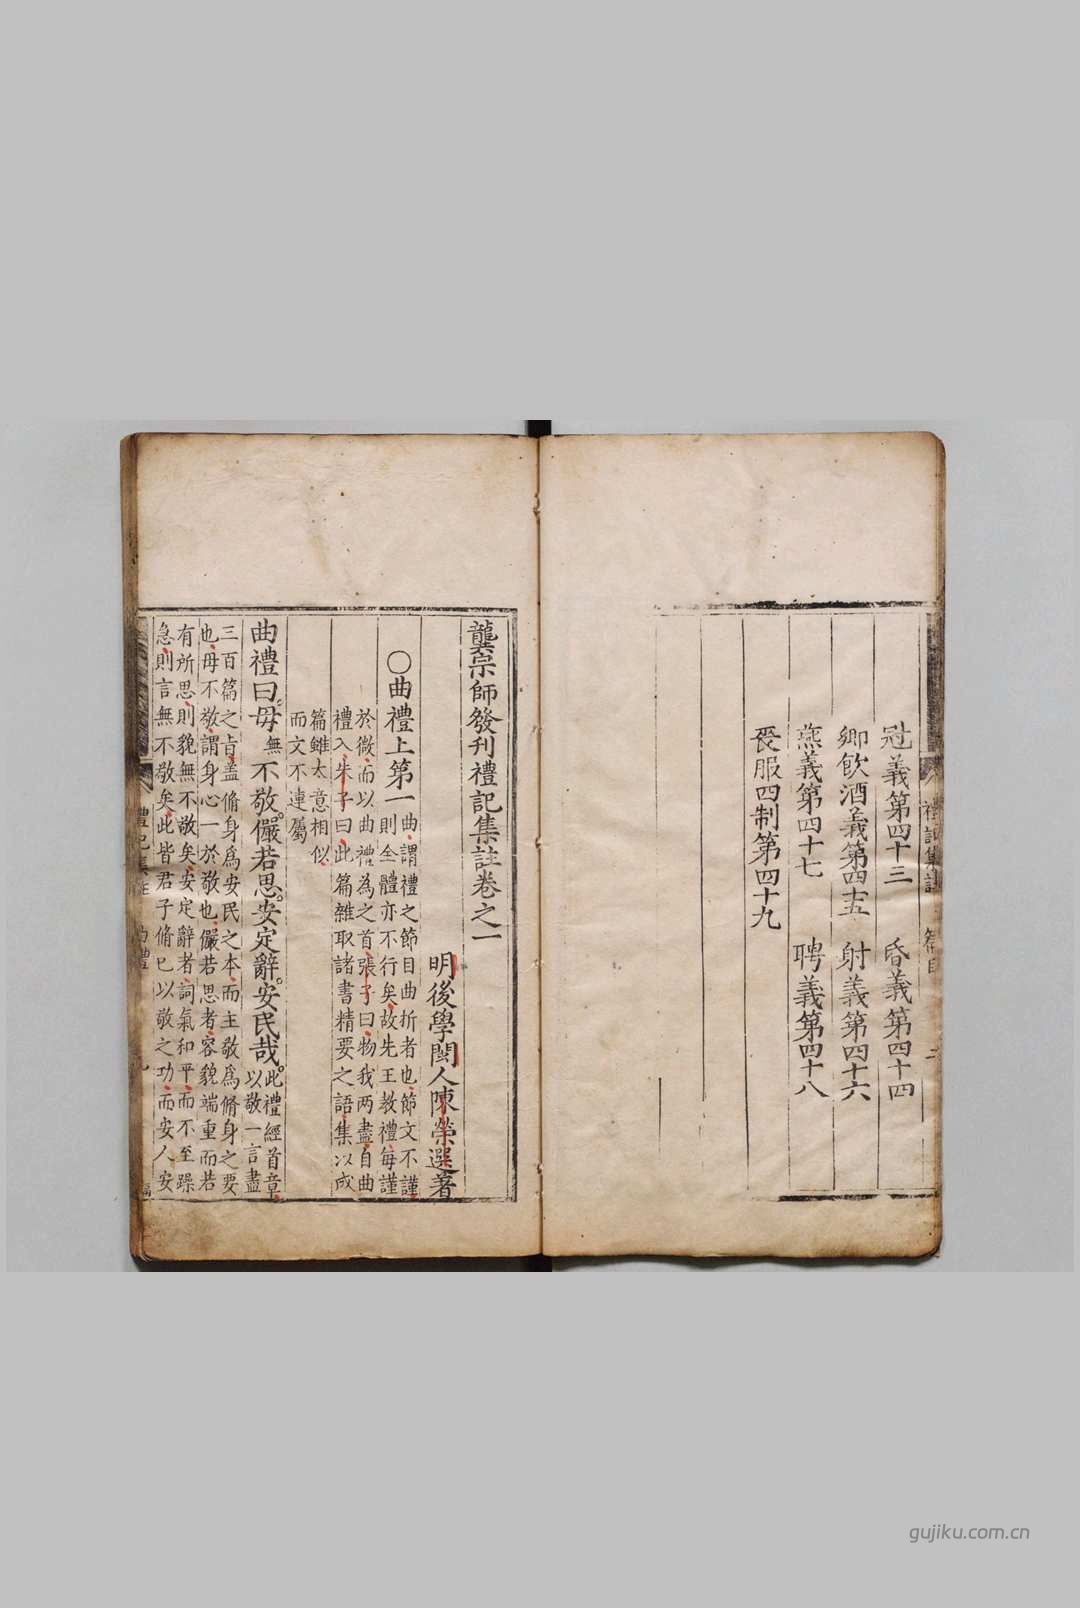 冠義第四十三　昏義第四十四
鄉飲酒義第四十五　射義第四十六
燕義第四十七　聘義第四十八
喪服四制第四十九
龔宗師發刊禮記集註卷之一
明後學閩人陳榮選著
〇曲禮上第一
曲謂禮之節目曲折者也節文不謹
則全體亦不行矣故先王教禮每謹
於微而以曲禮為之首張子曰物我两盡自曲
禮入朱子曰此篇雜取諸書精要之語集以成
篇雖大意相似
而文不連屬
曲禮曰毋無不敬儼若思安定辭安民哉此禮經首章
以敬一言盡
三百篇之旨盖脩身爲安民之本而主敬爲脩身之要
也毋不敬謂身心一於敬也儼若思者容貌端重而若
有所思則貌無不敬矣安定辭者詞氣和平而不至躁
急則言無不敬矣此皆君子脩己以敬之功而安人安
gujiku.com.cn